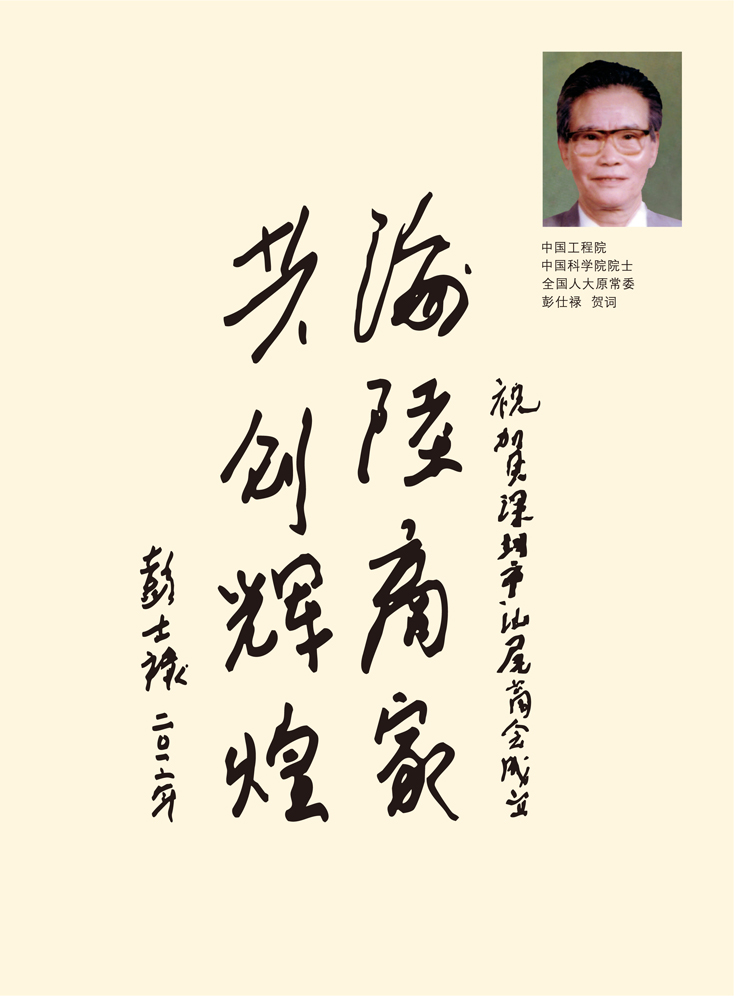 中国工程院
中国科学院院士
全国人大原常委
彭仕禄 贺词
祝贺深圳市汕尾商会成立
海陸商家
共创辉煌
彭士禄 二〇一二年